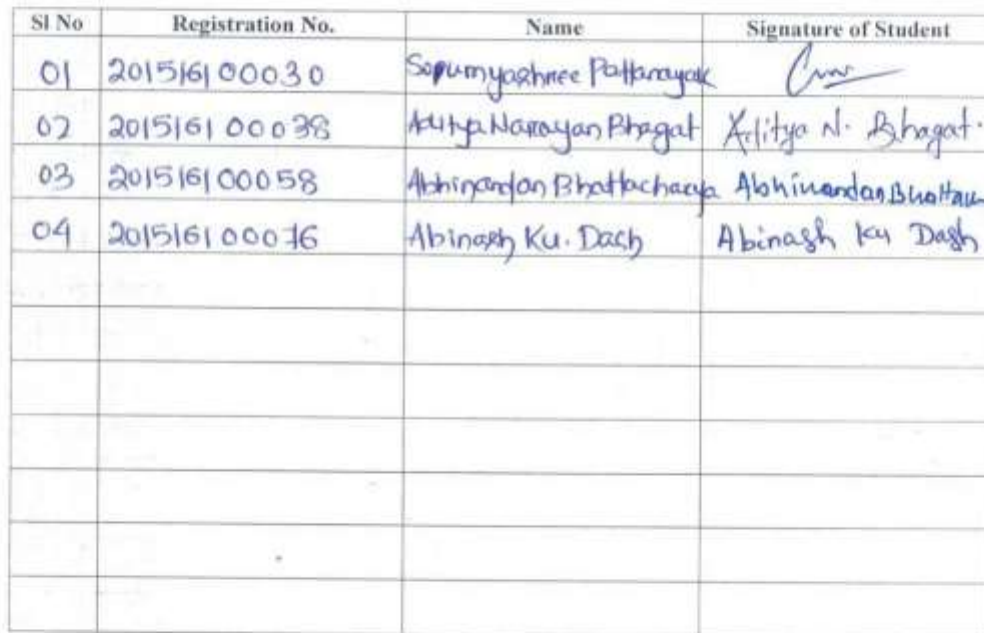 Sl No Registration No. Name Signature of Student
01 201516100030 Pattanayak
02 201516100038 Aditya Narayan Bhagat Aditya N. Bhagat.
03 201516100058 Abhinandan Bhattacharya Abhinandan
04 201516100076 Abinash Ku. Dash Abinash Ku Dash